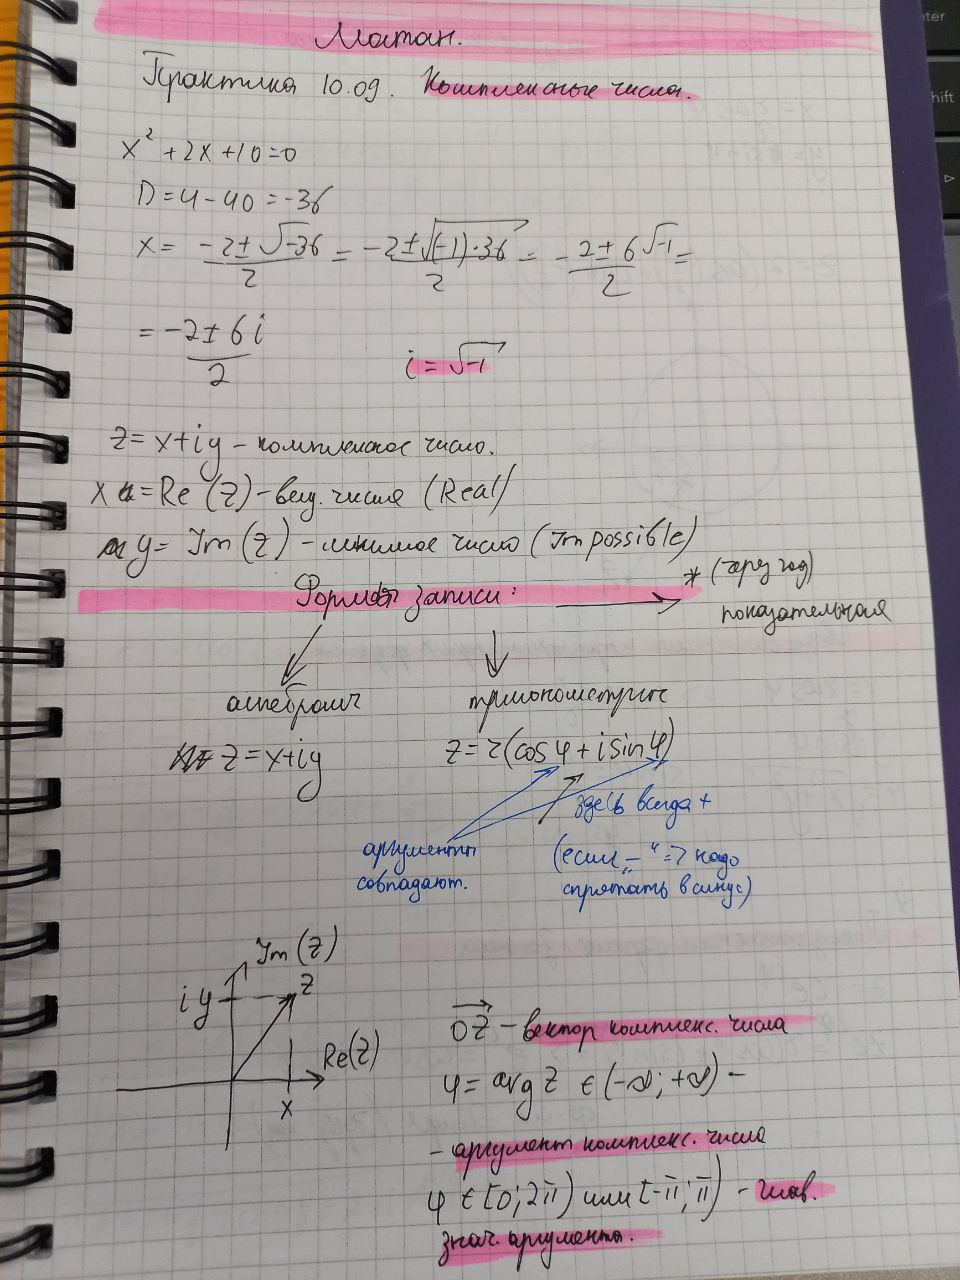 Матан.
Практика 10.09. Комплексные числа.
x² + 2x + 10 = 0
D = 4 - 40 = -36
x = (-2 ± √-36)/2 = (-2 ± √(-1)·36)/2 = -(2 ± 6√-1)/2 =
= (-2 ± 6i)/2
i = √-1
z = x+iy - комплексное число.
x = Re(z) - вещ. числа (Real)
y = Im(z) - мнимое число (Impossible)
Формы записи:
* (через год)
показательная
алгебраич
тригонометрич
z = x+iy
z = r(cos φ + i sin φ)
здесь всегда +
аргументы
совпадают.
(если „-" => надо
спрятать в синус)
Im(z)
iy
z
Re(z)
x
0z - вектор комплекс. числа
φ = arg z ∈ (-∞; +∞) -
- аргумент комплекс. числа
φ ∈ [0; 2π) или [-π; π) - глав.
знач. аргумента.